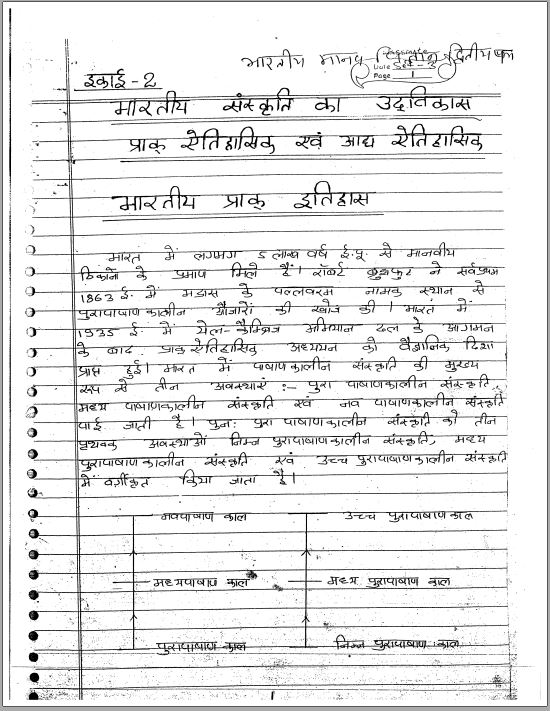 भारतीय मानव द्वितीय
classmate
Date
Page 1
इकाई - 2
भारतीय संस्कृति का उद्वविकास
प्राक् ऐतिहासिक एवं आद्य ऐतिहासिक
भारतीय प्राक् इतिहास
भारत में लगभग 5 लाख वर्ष ई.पू. से मानवीय
ठिकानों के प्रमाण मिले हैं। रॉबर्ट ब्रुसफुट ने सर्वप्रथम
1863 ई. में मद्रास के पल्लवरम नामक स्थान से
पुरापाषाणकालीन औजारों की खोज की। भारत में
1935 ई. में येल-कैम्ब्रिज अभियान दल के आगमन
के बाद प्राक् ऐतिहासिक अध्ययन को वैज्ञानिक दिशा
प्राप्त हुई। भारत में पाषाणकालीन संस्कृति की मुख्य
रूप से तीन अवस्थाएं :- पुरा पाषाणकालीन संस्कृति,
मध्य पाषाणकालीन संस्कृति एवं नव पाषाणकालीन संस्कृति
पाई जाती है। पुनः पुरापाषाणकालीन संस्कृति को तीन
पृथक अवस्थाओं निम्न पुरापाषाणकालीन संस्कृति, मध्य
पुरापाषाणकालीन संस्कृति एवं उच्च पुरापाषाणकालीन संस्कृति
में वर्गीकृत किया जाता है।
नवपाषाण काल उच्च पुरापाषाण काल
मध्यपाषाण काल मध्य पुरापाषाण काल
पुरापाषाण काल निम्न पुरापाषाण काल
1